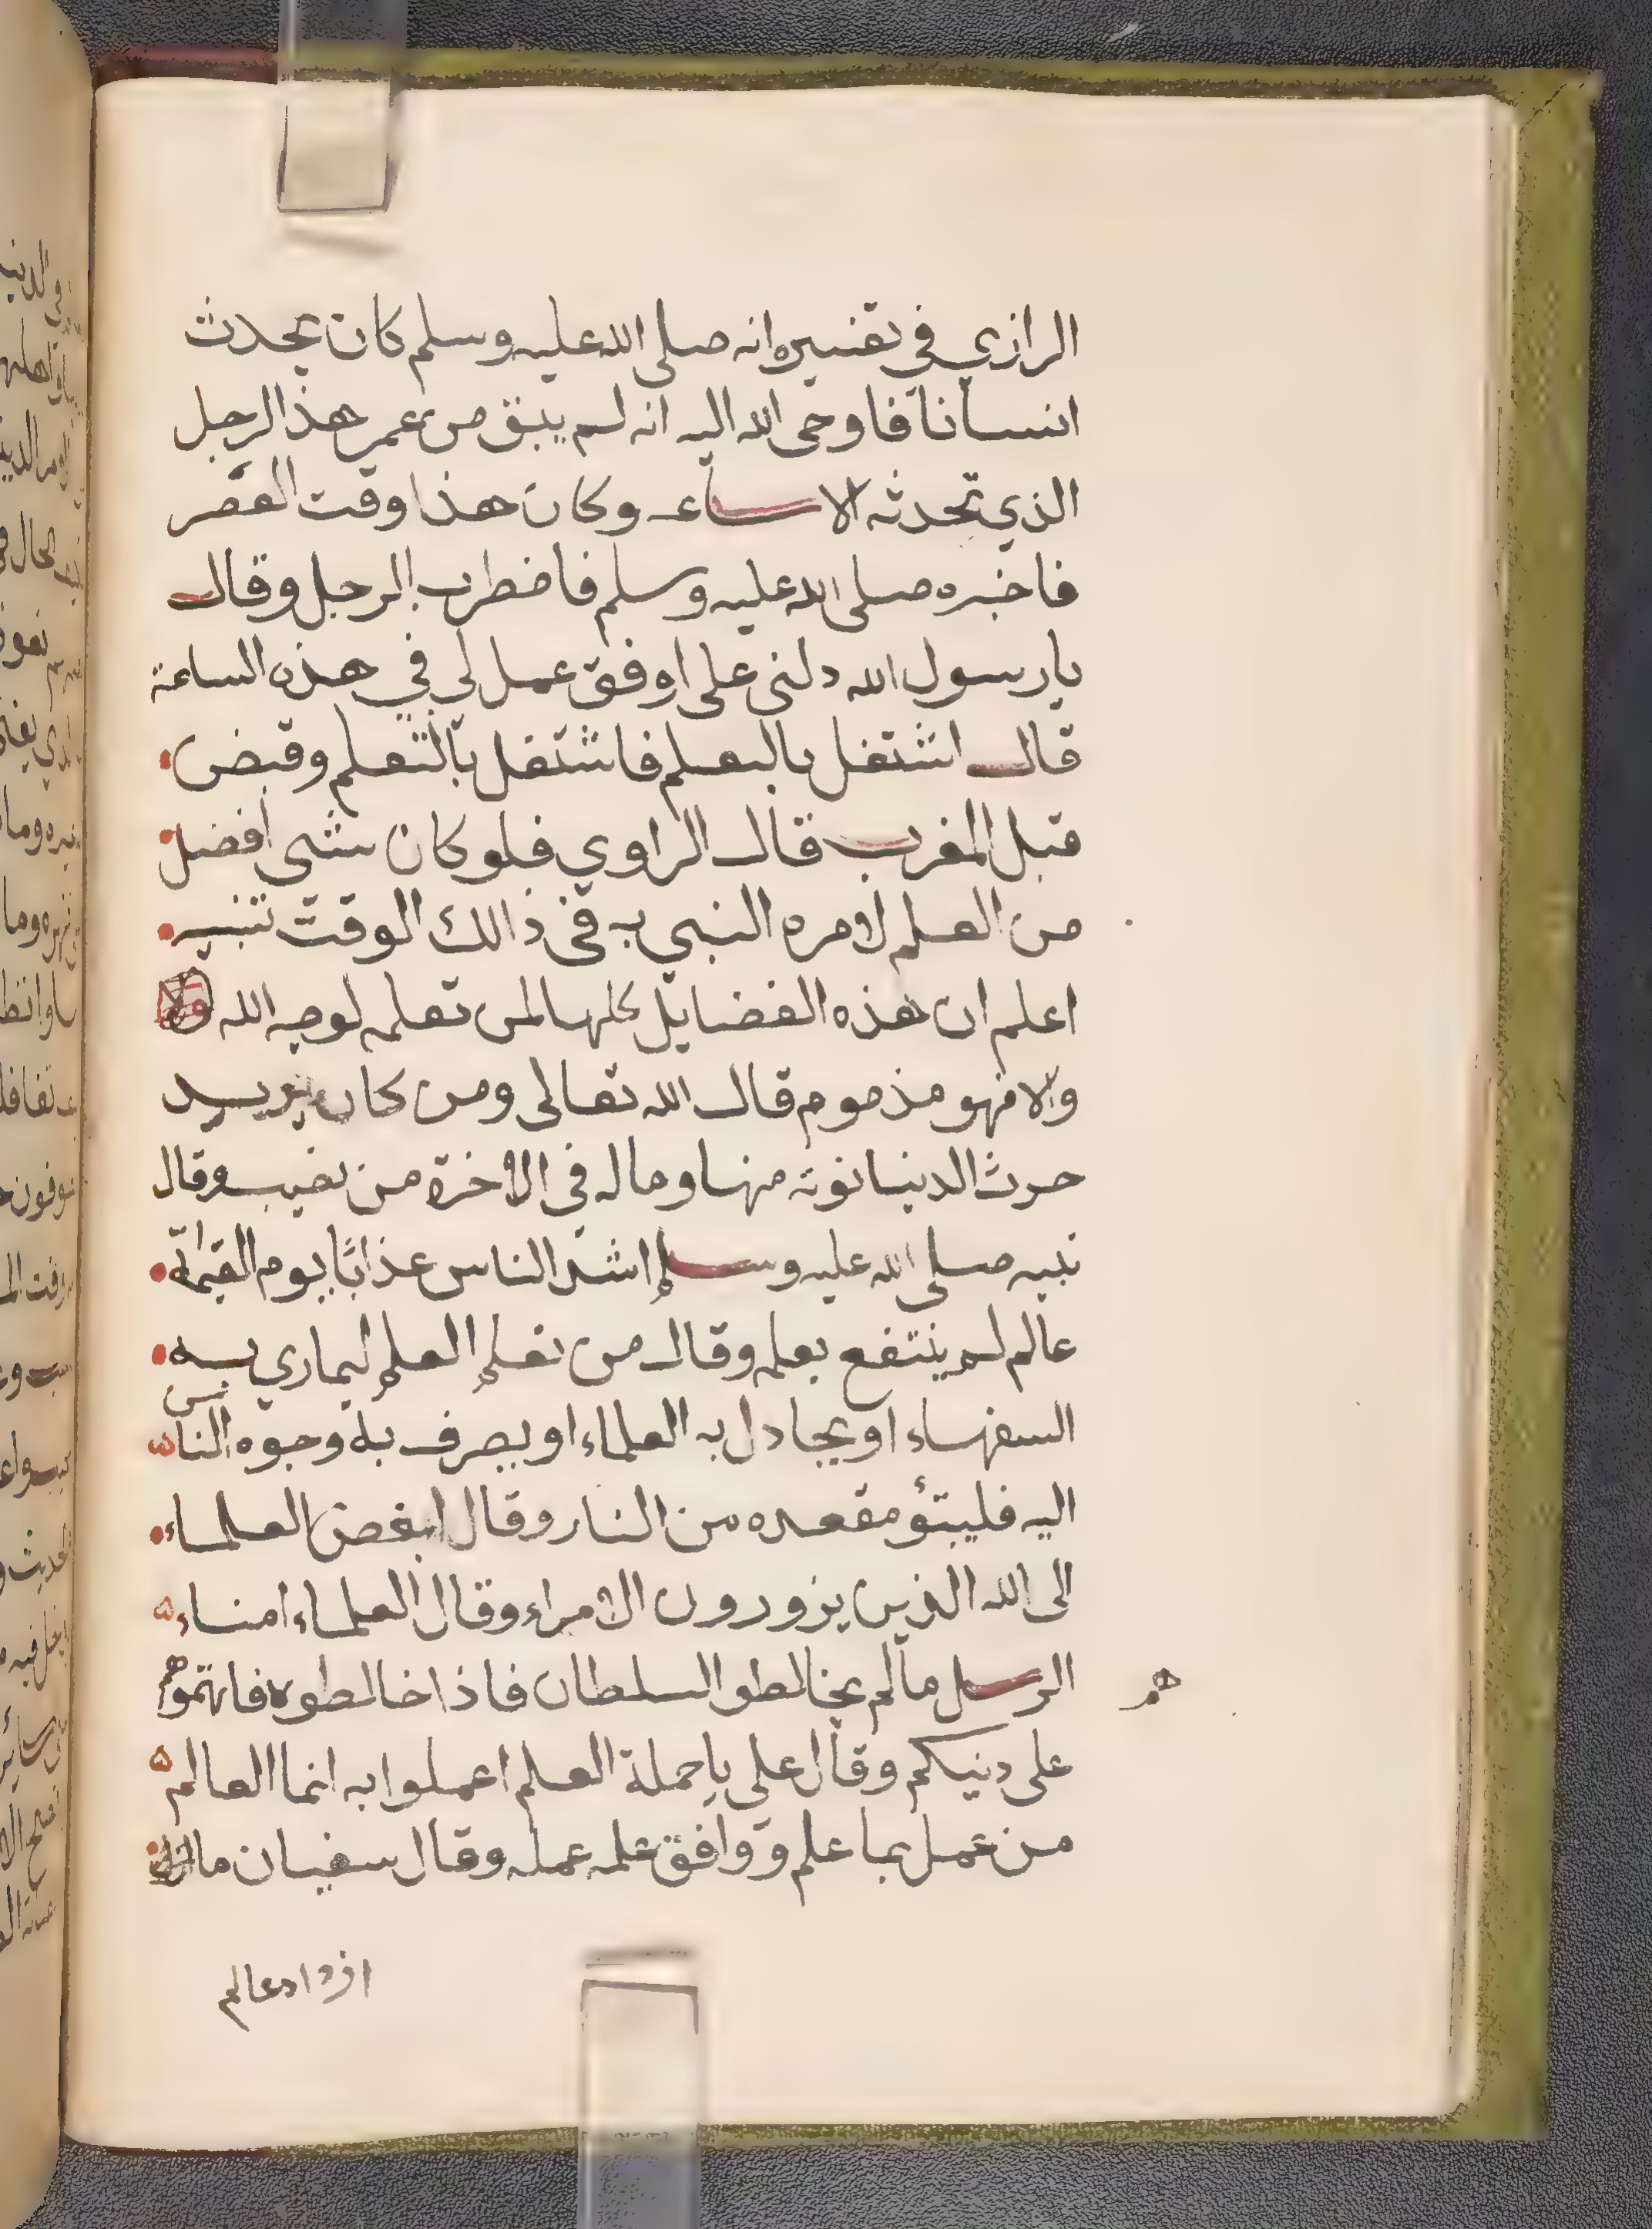 الرازي في تفسيره انه صلى الله عليه وسلم كان يحدث
انسانا فاوحى الله اليه انه لم يبق من عمر هذا الرجل
الذي تحدثه الا ساعة وكان هذا وقت العصر
فاخبره صلى الله عليه وسلم فاضطرب الرجل وقال
يارسول الله دلني على اوفق عمل لي في هذه الساعة
قال اشتغل بالتعلم فاشتغل بالتعلم وقبض
قبل المغرب قال الراوي فلو كان شي افضل
من العلم لامره النبي به في ذالك الوقت تنبيه
اعلم ان هذه الفضايل كلها لمن تعلمه لوجه الله
والا فهو مذموم قال الله تعالى ومن كان يريد
حرث الدنيا نوته منها وماله في الاخرة من نصيب وقال
نبيه صلى الله عليه وسلم اشد الناس عذابا يوم القيمة
عالم لم ينتفع بعلمه وقال من تعلم العلم ليماري به
السفهاء او يجادل به العلماء او يصرف به وجوه الناس
اليه فليتبؤ مقعده من النار وقال ابغض العلماء
الى الله الذين يزورون الامراء وقال العلماء امناء
الرسل مالم يخالطو السلطان فاذا خالطوه فاتهموهم
هم
على دنيكم وقال على ياحملة العلم اعملوا به انما العالم
من عمل بما علم ووافق علمه عمله وقال سفيان ما
ازداد عالم